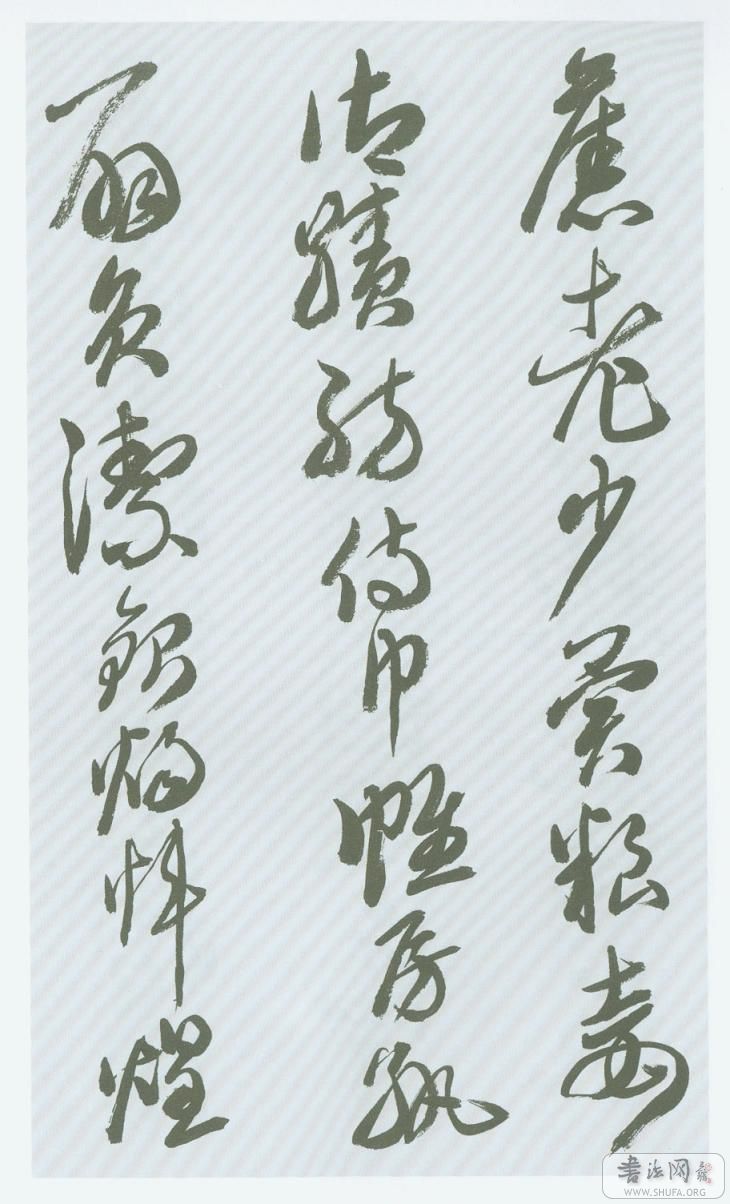 舊老少異粮妾
御績紡侍巾帷房紈
扇員潔銀燭煒煌
書法网
WWW.SHUFA.ORG